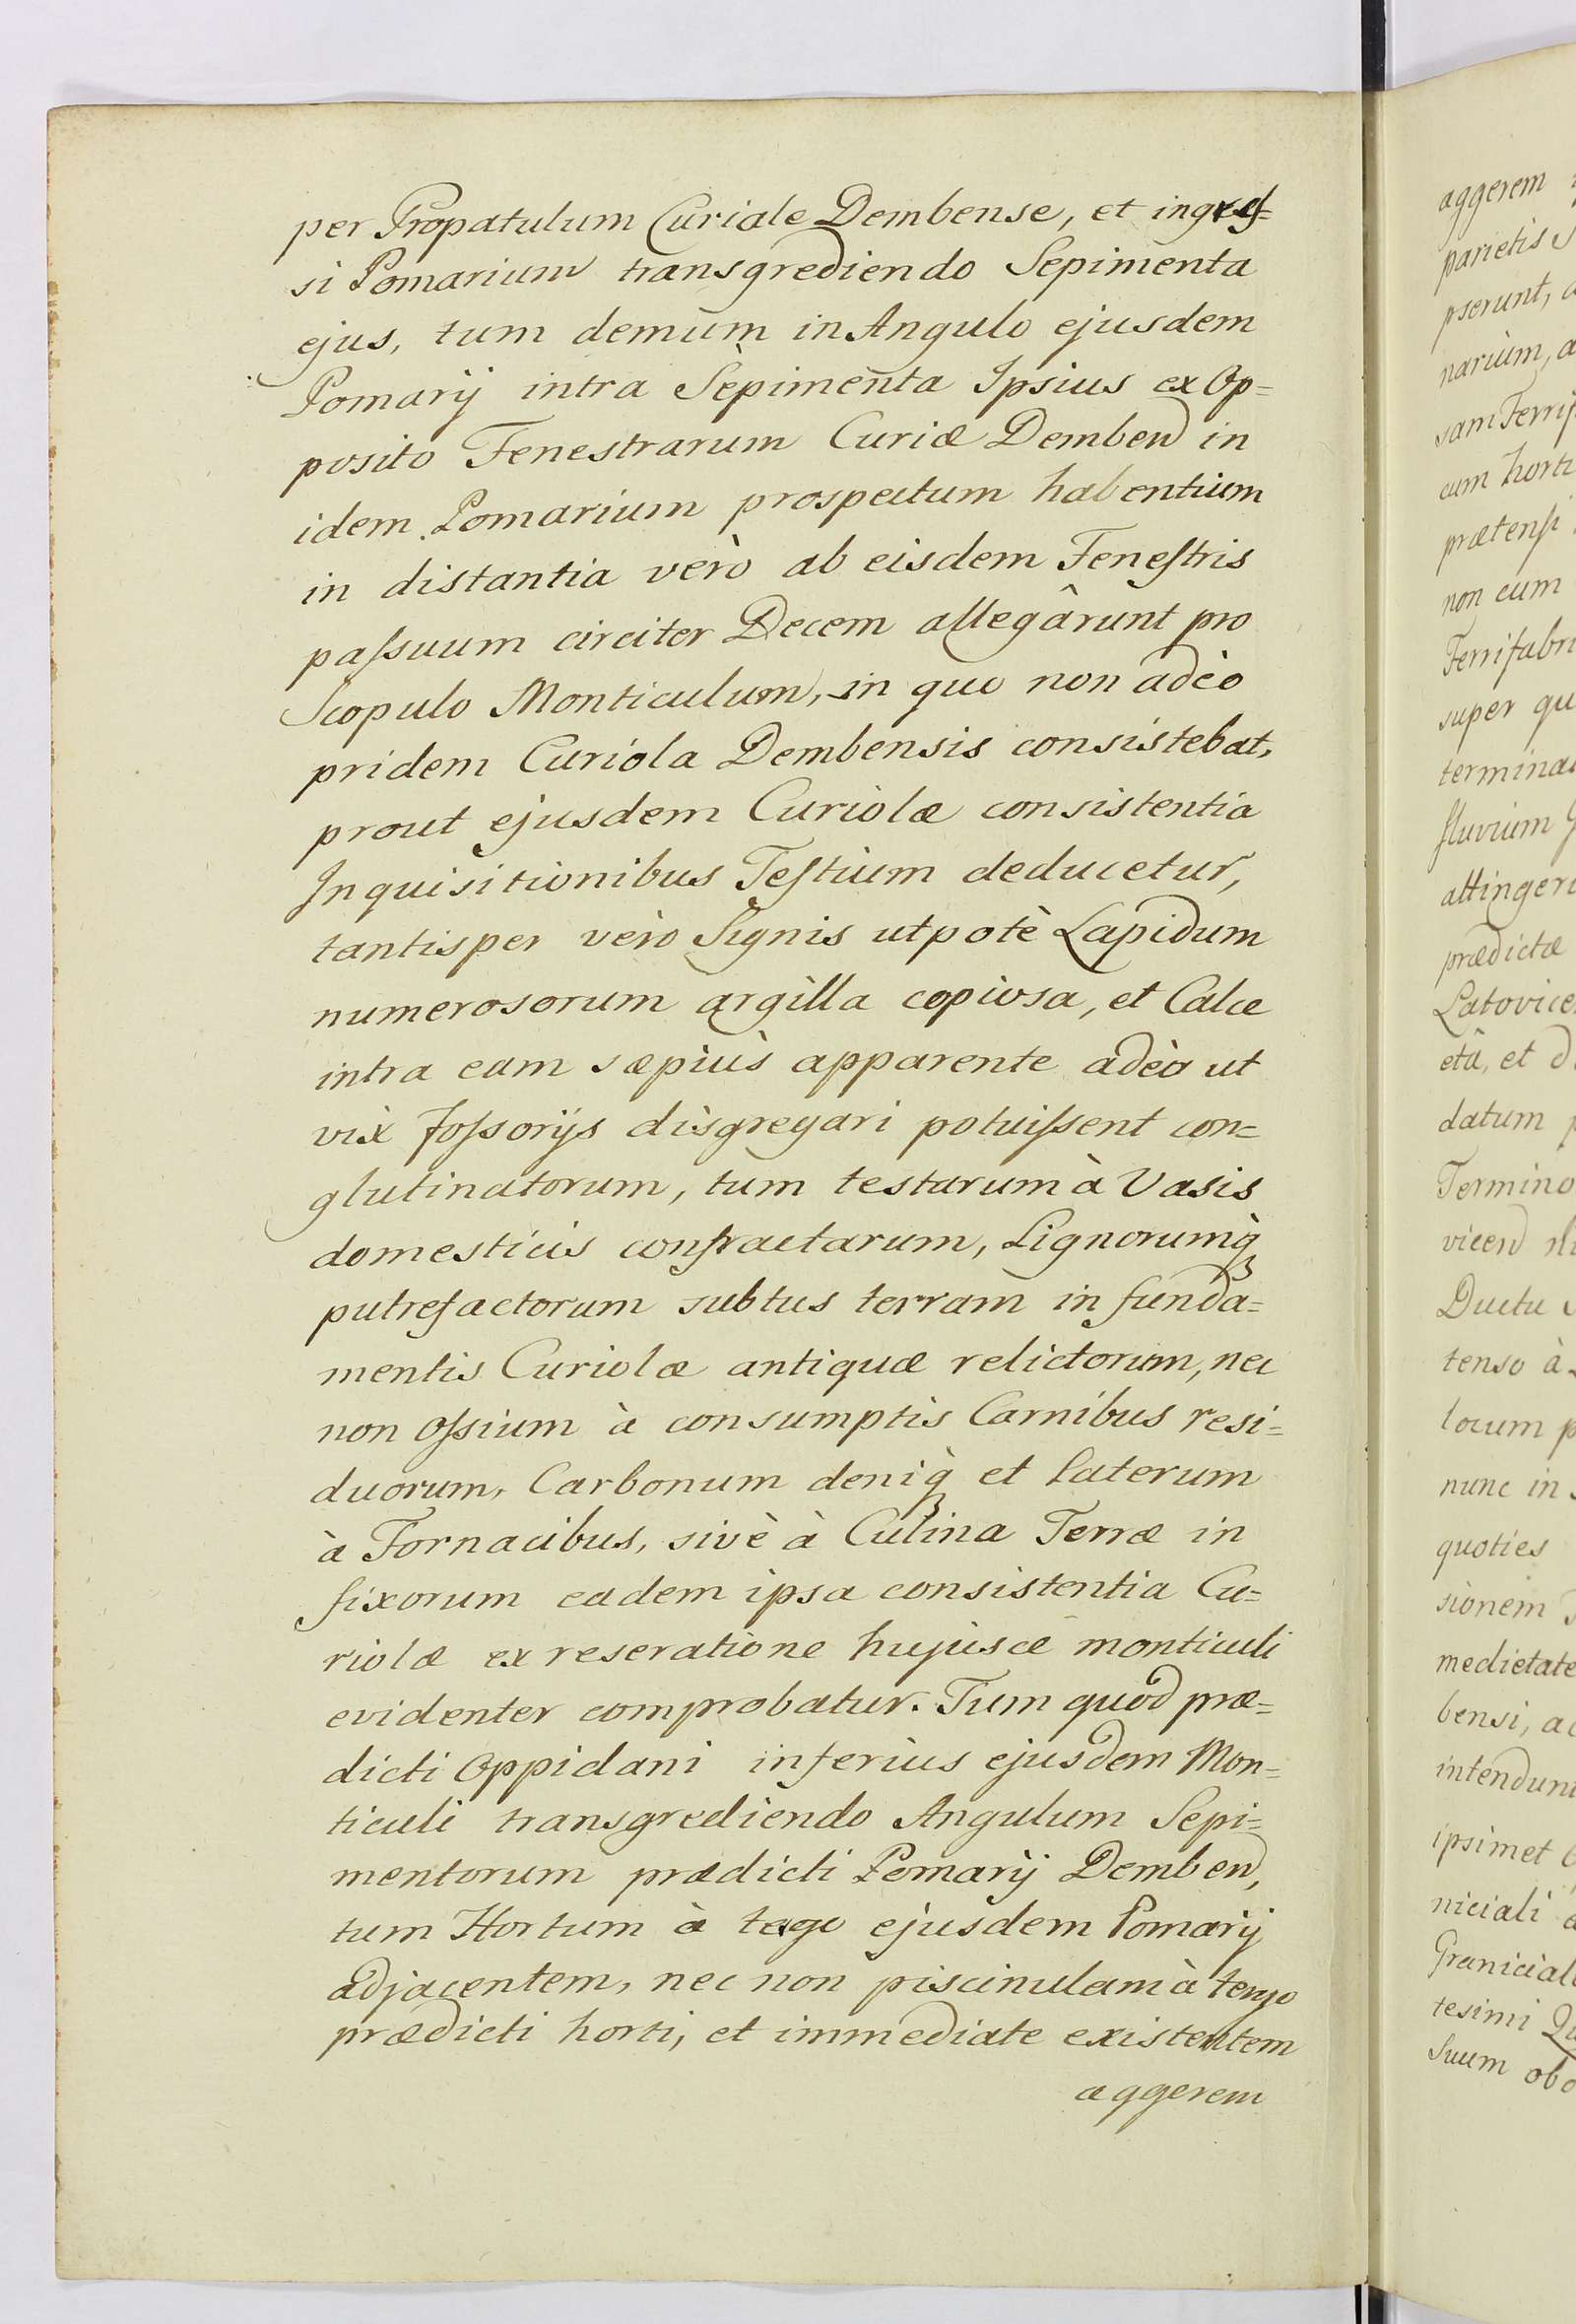 per Propatulum Curiale Dembense, et ingreſ=
si Pomarium transgrediendo Sepimenta
ejus, tum demùm in Angulo ejusdem
Pomarij intra Sepimenta Ipsius ex Op=
posito Fenestrarum Curiæ Demben in
idem Pomarium prospectum habentium
in distantia verò ab eisdem Feneſtris
paſsuum circiter Decem allegârunt pro
Scopulo Monticulum, in quo non adèo
pridem Curiola Dembensis consistebat,
prout ejusdem Curiolæ consistentia
Inquisitionibus Teſtium deducetur,
tantisper vero Signis utpotè Lapidum
numerosorum argilla copiosa, et Calce
intra eam sæpiùs apparente adèo ut
vix foſsorijs disgregari potuiſsent con=
glutinatorum, tum testarum à Vasis
domesticis confractarum, Lignorumq̀
putrefactorum subtus terram in funda=
mentis Curiolæ antiquæ relictorum, nec
non oſsium à consumptis Carnibus resi=
duorum, Carbonum deniq̀ et Laterum
à Fornacibus, sivè à Culina Terræ in
fixorum eadem ipsa consistentia Cu=
riolæ ex reseratione hujusce monticuli
evidenter comprobatur. Tum quod præ=
dicti Oppidani inferius ejusdem Mon=
ticuli transgrediendo Angulum Sepi=
mentorum prædicti Pomarij Demben,
tum Hortum à tergo ejusdem Pomarij
adjacentem, nec non piscinulam à tergo
prædicti horti, et immediate existentem
aggerem
aggerem
parietis
pserunt,
narium,
sam Ferrif
cum horti
prætenſi
non cum
Ferrifabri
super qu
termina
fluvium
attinger
prædictæ
Latovice
età, et d
datum
Termino
vicen
Ductu
tenso à
locum p
nunc in
quoties
sionem
medietate
bensi, ac
intendun
ipsimet
niciali
Granicial
tesimi Qu
Suum obo